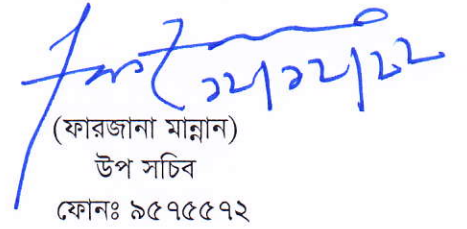 ১২/১২/২২
(ফারজানা মান্নান)
উপ সচিব
ফোনঃ ৯৫৭৫৫৭২